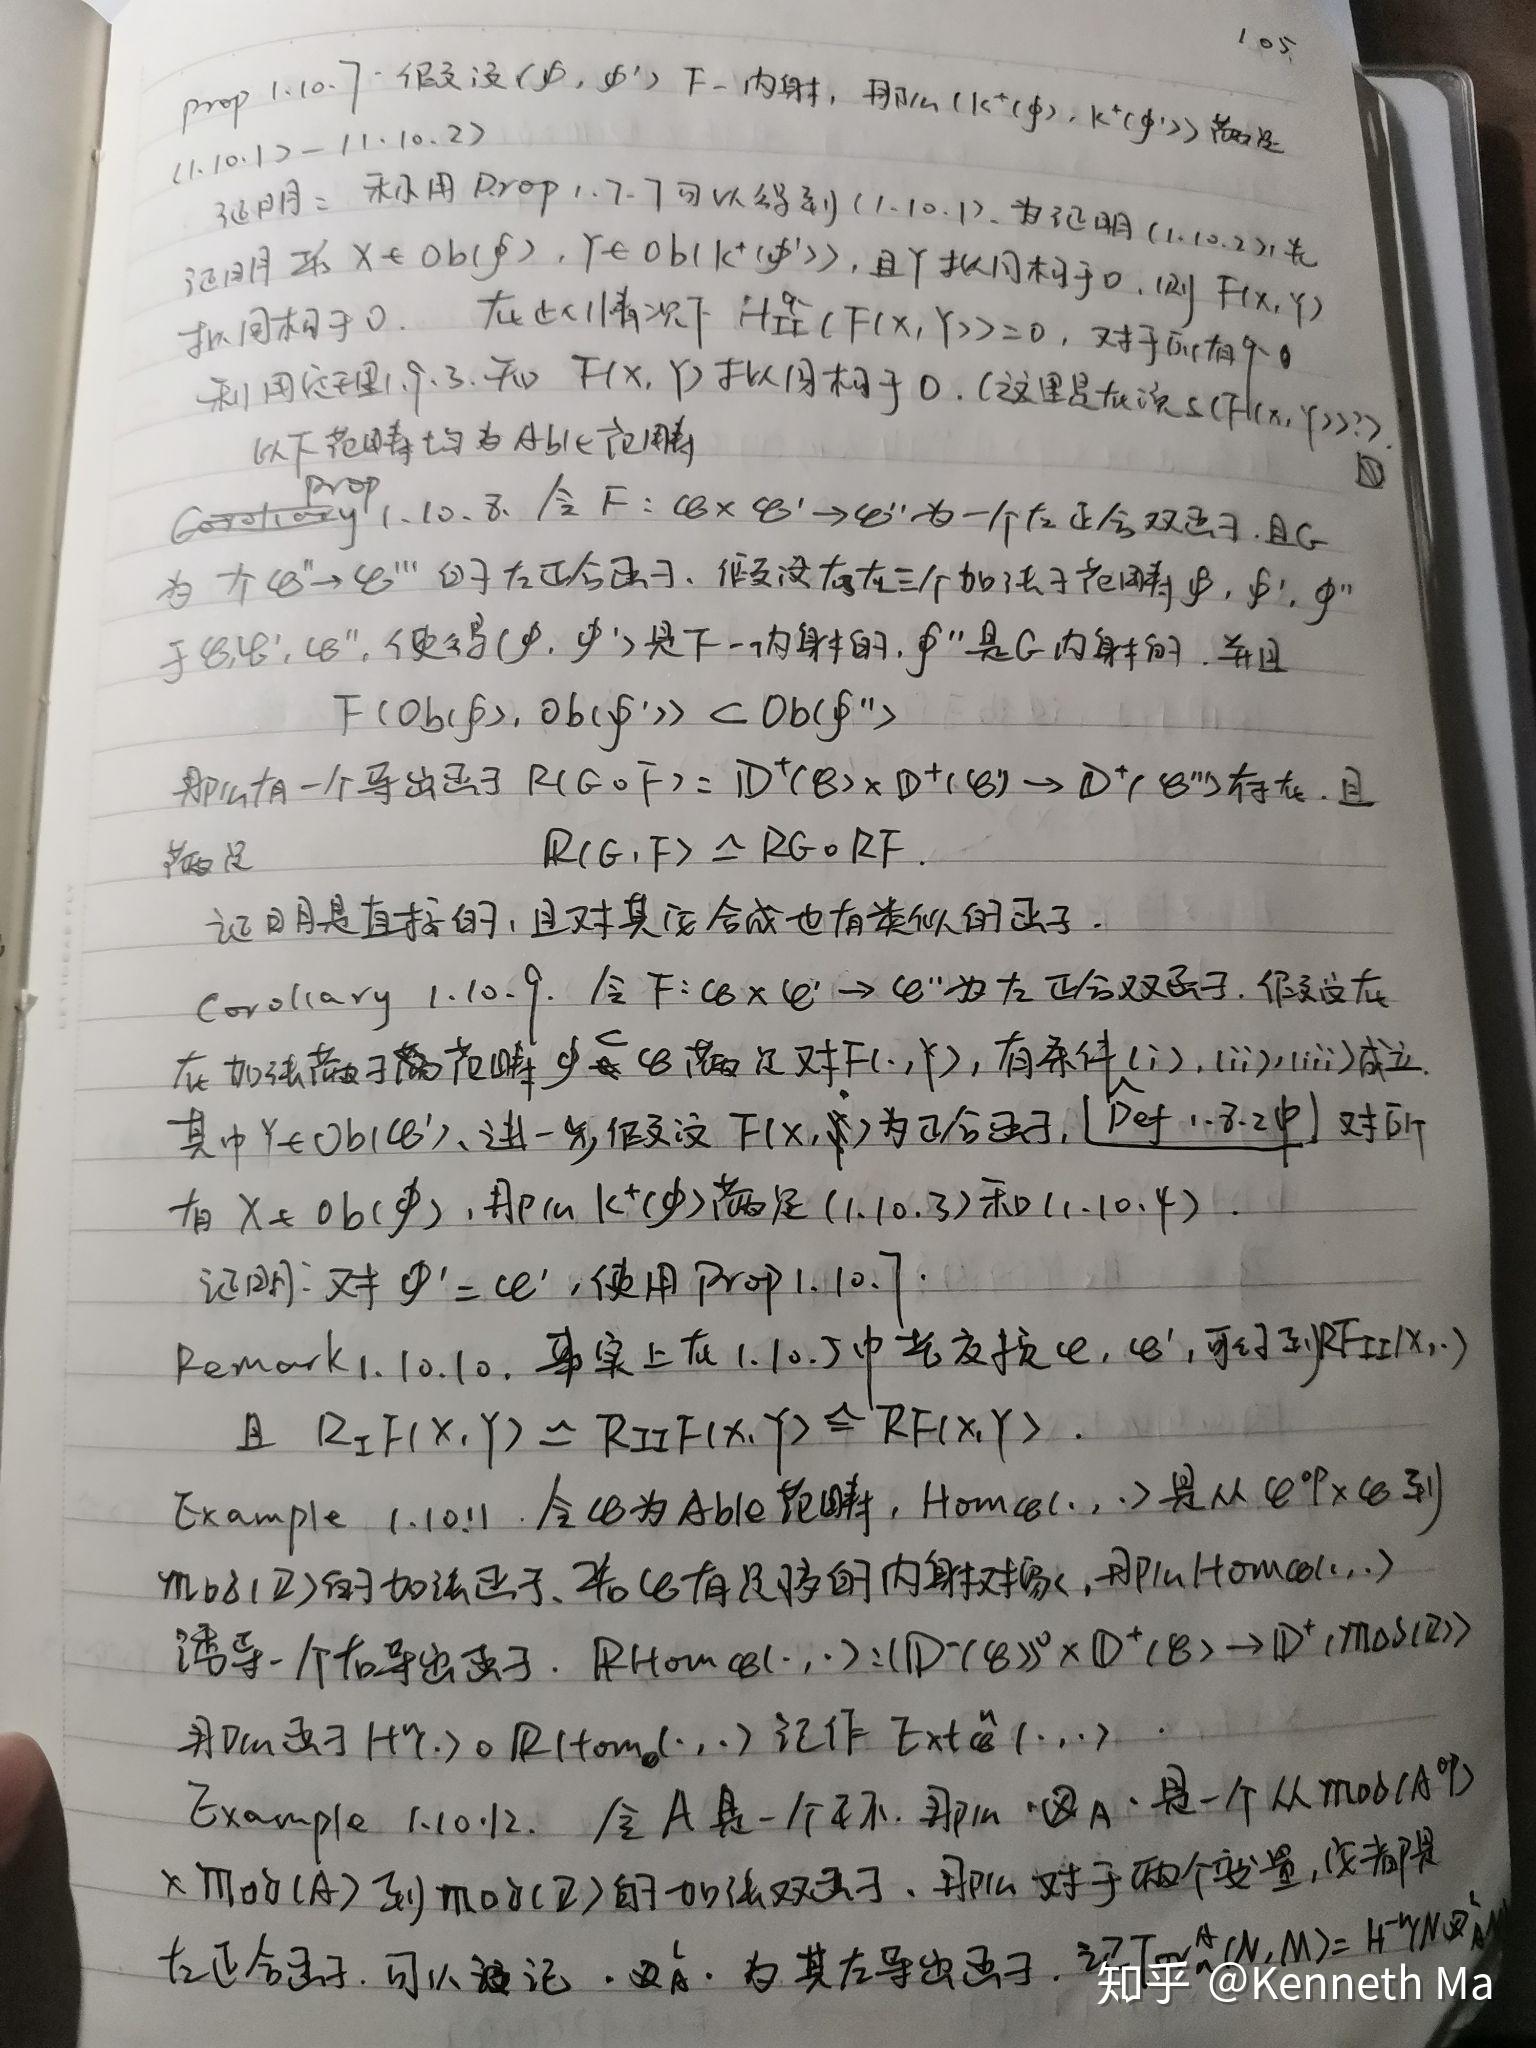 105
Prop 1.10.7. 假设(𝒥, 𝒥') F-内射, 那么(K⁺(𝒥), K⁺(𝒥'))满足
(1.10.1)-(1.10.2)
证明: 利用Prop 1.7.7可以得到(1.10.1). 为证明(1.10.2), 先
证明 若 X∈Ob(𝒥), Y∈Ob(K⁺(𝒥')), 且Y拟同构于0, 则 F(X,Y)
拟同构于0. 在此情况下 H_II^q(F(X,Y))=0, 对于所有q.
利用定理1.9.3. 知 F(X,Y)拟同构于0. (这里是在说s(F(X,Y))?).
以下范畴均为Able范畴
Prop 1.10.8. 令 F: 𝒞×𝒞'→𝒞''为一个左正合双函子. 且G
为 𝒞''→𝒞''' 的左正合函子. 假设存在三个加法子范畴𝒥, 𝒥', 𝒥''
于𝒞,𝒞',𝒞'', 使得(𝒥, 𝒥')是F-内射的, 𝒥''是G内射的. 并且
F(Ob(𝒥), Ob(𝒥')) ⊂ Ob(𝒥'')
那么有一个导出函子 R(G∘F): D⁺(𝒞)×D⁺(𝒞') → D⁺(𝒞''')存在. 且
满足 R(G,F) ≃ RG∘RF.
证明是直接的, 且对其它合成也有类似的函子.
Corollary 1.10.9. 令 F: 𝒞×𝒞' → 𝒞''为左正合双函子. 假设存
在加法子范畴 𝒥⊂𝒞 满足对F(·,Y), 有条件(i),(ii),(iii)成立.
其中Y∈Ob(𝒞'), 进一步, 假设 F(X,·)为正合函子, [Def 1.8.2中] 对所
有 X∈Ob(𝒥), 那么K⁺(𝒥)满足(1.10.3)和(1.10.4).
证明: 对 𝒥'=𝒞', 使用Prop 1.10.7.
Remark 1.10.10. 事实上在1.10.5中若交换𝒞, 𝒞', 可得到RF_II(X,·)
且 R_I F(X,Y) ≃ R_II F(X,Y) ≃ RF(X,Y).
Example 1.10.11. 令𝒞为Able范畴, Hom𝒞(·,·)是从𝒞^op×𝒞到
Mod(Z)的加法函子. 若𝒞有足够的内射对象, 那么Hom𝒞(·,·)
诱导一个右导出函子. RHom𝒞(·,·): (D⁻(𝒞))⁰×D⁺(𝒞) → D⁺(Mod(Z))
那么函子Hⁿ(·)∘RHom𝒞(·,·)记作 Ext𝒞ⁿ(·,·).
Example 1.10.12. 令A是一个环. 那么 ·⊗_A· 是一个从Mod(A^op)
×Mod(A)到Mod(Z)的加法双函子. 那么对于两个变量, 它都是
左正合函子. 可以记 ·⊗_A^L· 为其左导出函子. 记Tor_n^A(N,M)=H⁻ⁿ(N⊗_A^L M)
知乎 @Kenneth Ma